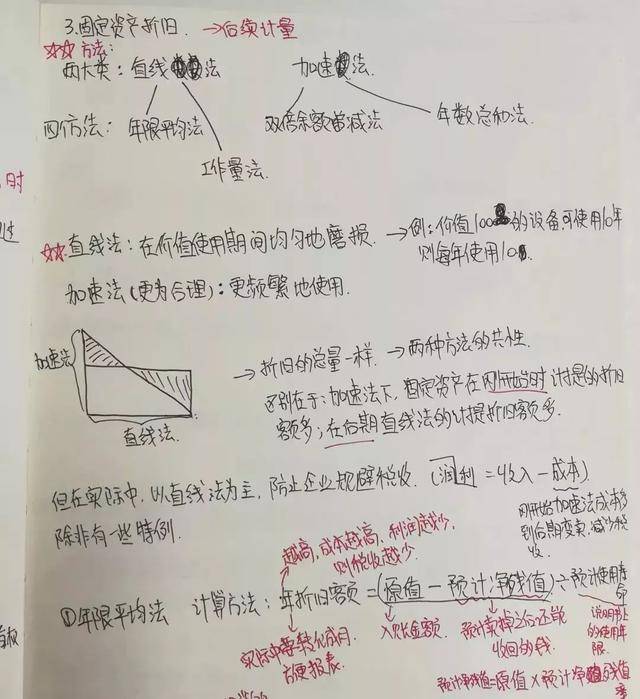 3.固定资产折旧. →后续计量
☆☆ 方法:
两大类: 直线法 加速法.
四个方法: 年限平均法 双倍余额递减法 年数总和法.
工作量法.
时
过
☆☆ 直线法: 在价值使用期间均匀地磨损. →例: 价值100的设备,可使用10年
则每年使用10
加速法(更为合理): 更频繁地使用.
加速法
直线法.
→折旧的总量一样. →两种方法的共性.
区别在于: 加速法下, 固定资产在刚开始时计提的折旧
额多; 在后期直线法的计提折旧额多.
但在实际中, 以直线法为主, 防止企业规避税收. (润利=收入-成本)
除非有一些特例.
刚开始加速法成本多
到后期变卖, 减少税
收.
越高, 成本越高, 利润越少,
则税收越少.
①年限平均法 计算方法: 年折旧额=(原值-预计净残值)÷预计使用寿命
实际中要转化成月.
方便报表.
入账金额.
预计卖掉之后还能
收回的钱.
说明书上
的使用年
限.
预计净残值=原值×预计净残值率